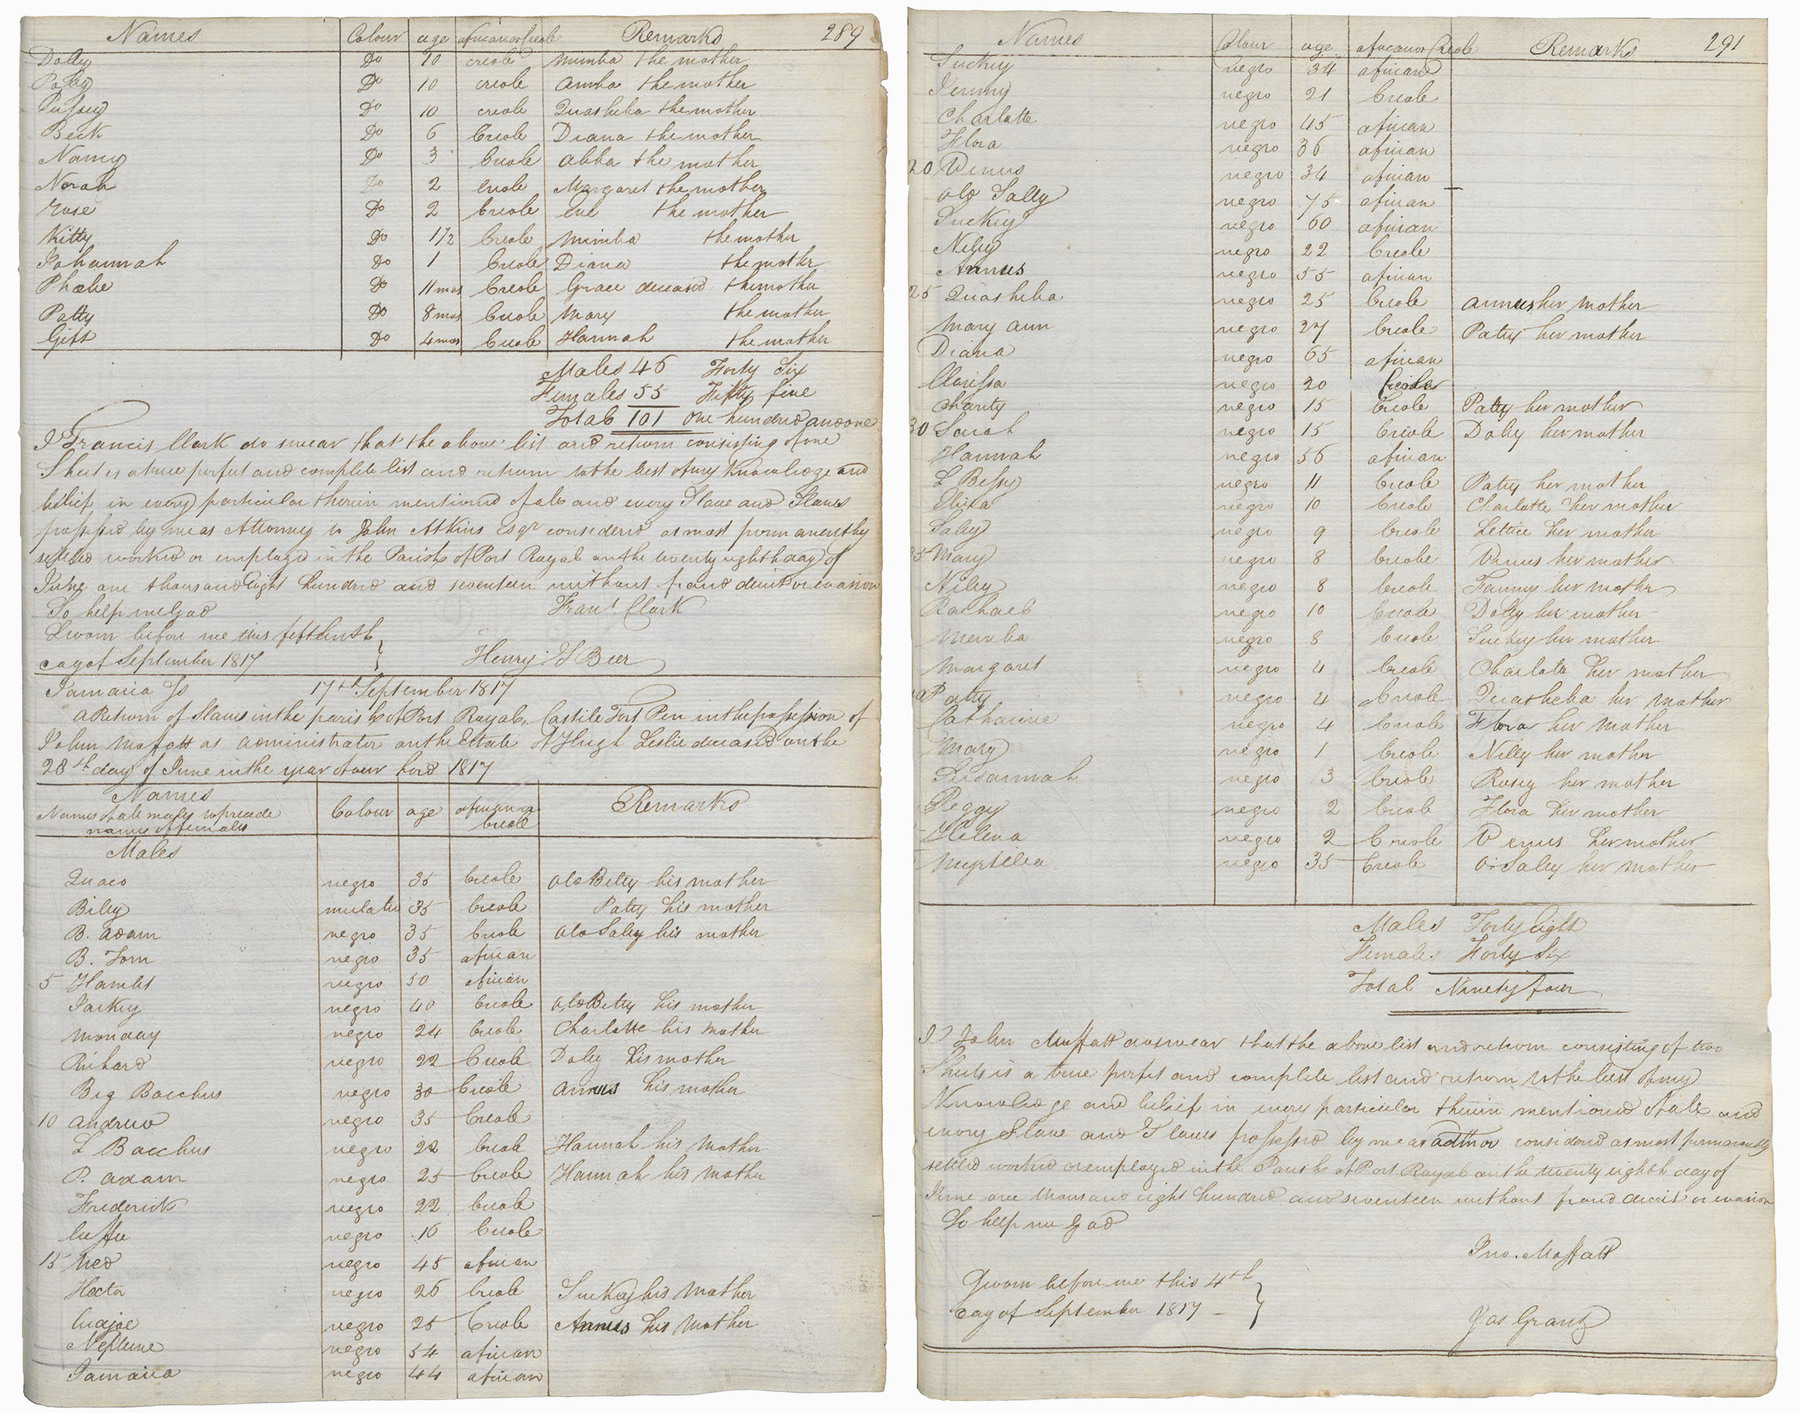 Names Colour age african or Creole Remarks 289
Dolly Do 10 creole Mimba the mother
Patty Do 10 creole Amba the mother
Do 10 creole Quasheba the mother
Beck Do 6 Creole Diana the mother
Nancy Do 3 Creole Abba the mother
Norah Do 2 creole Margaret the mother
Rose Do 2 Creole Eve the mother
Kitty Do 1/2 Creole Mimba the mother
Johannah Do 1 Creole Diana the mother
Phœbe Do 11 mos Creole Grace deceased the mother
Patty Do 8 mos Creole Mary the mother
Gift Do 4 mos Creole Hannah the mother
Males 46 Forty Six
Females 55 Fifty five
Total 101 One hundred and one
I Francis Clark do swear that the above list and return consisting of one
Sheet is a true perfect and complete list and return to the best of my Knowledge and
belief in every particular therein mentioned of all and every Slave and Slaves
possessed by me as Attorney to John Atkins Esqr considered as most permanently
settled worked or employed in the Parish of Port Royal on the twenty eighth day of
June one thousand Eight hundred and seventeen without fraud deceit or evasion
So help me God Frans Clark
Sworn before me this fifteenth
day of September 1817 Henry Beer
Jamaica Ss 17th September 1817
a Return of Slaves in the parish of Port Royal, Castile Fort Pen in the possession of
John Moffatt as administrator on the Estate of Hugh Leslie deceased on the
28th day of June in the year of our Lord 1817
Names
Names of all males to precede Colour age african or Remarks
names of females Creole
Males
Quaco negro 35 Creole Old Betty his mother
Billy mulatto 35 Creole Patty his mother
B. Adam negro 35 Creole Old Sally his mother
B. Tom negro 35 african
5 Hamlet negro 50 african
Jackey negro 40 Creole Old Betty his mother
Monday negro 24 Creole Charlotte his mother
Richard negro 22 Creole Dolly his mother
Big Bacchus negro 30 Creole Annus his mother
10 Andrew negro 35 Creole
L Bacchus negro 22 Creole Hannah his mother
P. Adam negro 25 Creole Hannah his mother
Frederick negro 22 Creole
Cuffee negro 16 Creole
15 Ned negro 45 african
Hector negro 26 Creole Suckey his mother
Cudjoe negro 25 Creole Annus his mother
Neptune negro 54 african
Jamaica negro 44 african
Names Colour age african or Creole Remarks 291
Suckey negro 34 african
Jenny negro 21 Creole
Charlotte negro 45 african
Flora negro 36 african
20 Venus negro 34 african
Old Sally negro 75 african
Suckey negro 60 african
Nelly negro 22 Creole
Annus negro 55 african
25 Quasheba negro 25 Creole Annus her mother
Mary Ann negro 27 Creole Patty her mother
Diana negro 65 african
Clarissa negro 20 Creole
Charity negro 15 Creole Patty her mother
30 Sarah negro 15 Creole Dolly her mother
Hannah negro 56 african
L Betsy negro 11 Creole Patty her mother
Eliza negro 10 Creole Charlotte her mother
Sally negro 9 Creole Lettice her mother
5 Mary negro 8 Creole Venus her mother
Nelly negro 8 Creole Fanny her mother
Rachael negro 10 Creole Dolly her mother
Memba negro 8 Creole Suckey her mother
Margaret negro 4 Creole Charlotte her mother
Patty negro 4 Creole Quasheba her mother
Catharine negro 4 Creole Flora her mother
Mary negro 1 Creole Nelly her mother
Susannah negro 3 Creole Rosey her mother
Peggy negro 2 Creole Flora her mother
Helena negro 2 Creole Venus her mother
Myrtilla negro 35 Creole Od Salley her mother
Males Forty eight
Females Forty Six
Total Ninety four
I John Moffatt do swear that the above list and return consisting of two
Sheets is a true perfect and complete list and return to the best of my
Knowledge and belief in every particular therein mentioned of all and
every Slave and Slaves possessed by me as admor considered as most permanently
settled worked or employed in the Parish of Port Royal on the twenty eighth day of
June one thousand eight hundred and seventeen without fraud deceit or evasion
So help me God
Jno. Moffatt
Sworn before me this 4th
day of September 1817
Jas Grant